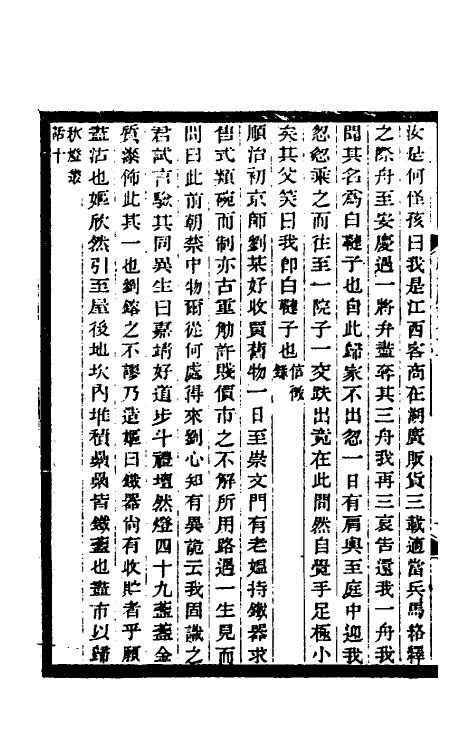 汝是何怪孩曰我是江西客商在湖廣販貨三載適當兵馬絡繹
之際舟至安慶過一將弁盡奪其三舟我再三哀告還我一舟我
問其名為白韃子也自此歸家不出忽一日有肩輿至庭中迎我
忽忽乘之而往至一院子一交跌出竟在此問然自覺手足極小
矣其父笑曰我卽白韃子也信徵錄
順治初京師劉某好收買舊物一日至崇文門有老媼持鐵器求
售式類碗而制亦古重觔許賤價市之不解所用路遇一生見而
問曰此前朝禁中物爾從何處得來劉心知有異詭云我固識之
君試言驗其同異生曰嘉靖好道步斗禮壇然燈四十九盞盞金
質漆佈此其一也劉鎔之不謬乃造嫗曰鐵器尚有收貯者乎願
盡沽也嫗欣然引至屋後地坎內堆積纍纍皆鐵盞也盡市以歸
秋燈叢
話十